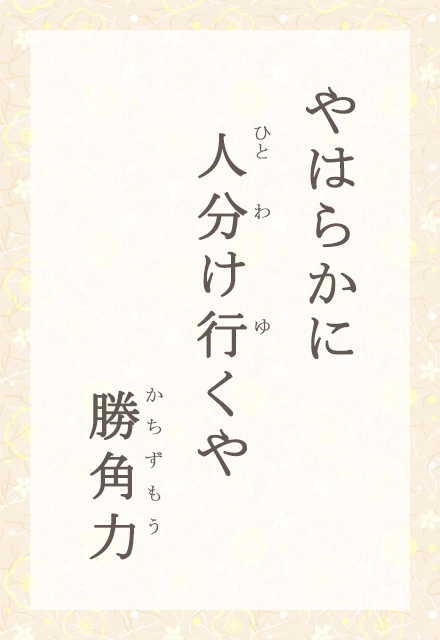 やはらかに
人分け行くや
ひと わ ゆ
勝角力
かちずもう